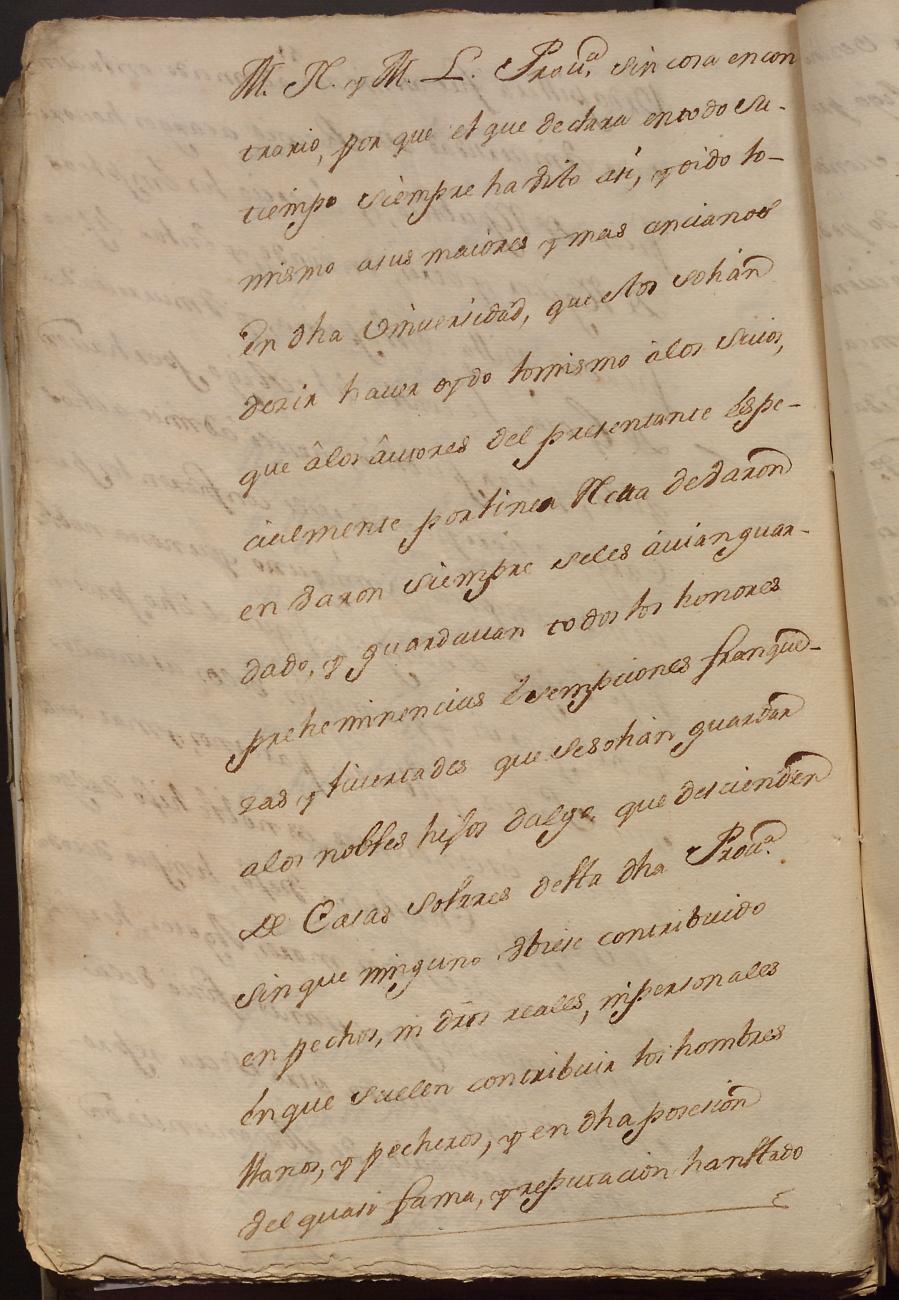 M. N. y M. L. Prou.ª sin cosa encon
trario, por que el que declara entodo su-
tiempo siempre ha dho asi, y oido lo-
mismo asus maiores y mas ancianos
En dha Vniuersidad, que estos sohan
decir hauer oydo lomismo àlos suios,
que âlos âutores del presentante Espe-
cialmente por linea Recta de Baron
en Baron siempre seles âuian guar-
dado, y guardauan todos los honores
preheminencias Esempciones franque-
zas y liuertades que sesohan guardar
alos nobles hijos dalgo que descienden
de Casas Solares desta dha Prou.ª
sin que ninguno Vbiese contribuido
en pechos, ni dros reales, nipersonales
Enque suelen contribuir los hombres
llanos, y pecheros, y en dha posesion
del quasi fama, y reputacion hanstado